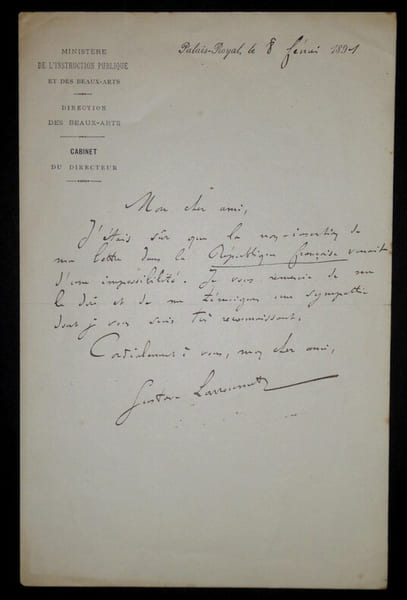 MINISTÈRE
DE L'INSTRUCTION PUBLIQUE
ET DES BEAUX-ARTS
DIRECTION
DES BEAUX-ARTS
CABINET
DU DIRECTEUR
Palais-Royal, le 8 février 1891
Mon cher ami,
J'étais sûr que la non-insertion de
ma lettre dans la République française venait
d'une impossibilité. Je vous remercie de me
le dire et de me témoigner une sympathie
dont je vous suis très reconnaissant.
Cordialement à vous, mon cher ami,
Gustave Larroumet